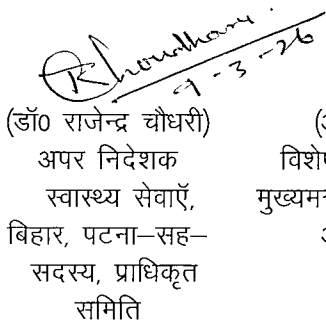 RChoudhary
9-3-26
(डॉ0 राजेन्द्र चौधरी)
अपर निदेशक
स्वास्थ्य सेवाऍ,
बिहार, पटना–सह–
सदस्य, प्राधिकृत
समिति
विशेष